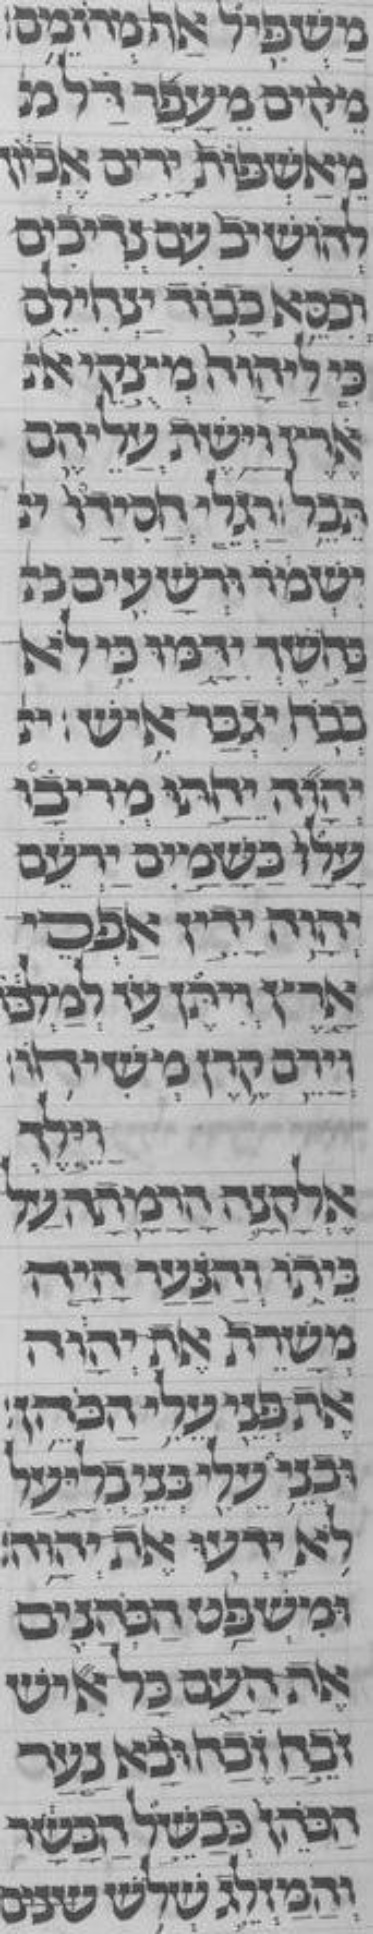 מַשְׁפִּיל אַף מְרוֹמֵם׃
מֵקִים מֵעָפָר דַּל מ
מֵאַשְׁפּוֹת יָרִים אֶבְיוֹן
לְהוֹשִׁיב עִם נְדִיבִים
וְכִסֵּא כָבוֹד יַנְחִילֵם
כִּי לַיהוָה מְיצֻקֵי אֶר
אֶרֶץ וַיָּשֶׁת עֲלֵיהֶם
תֵּבֵל׃ רַגְלֵי חֲסִידָו יִ
יִשְׁמֹר וּרְשָׁעִים בח
בַּחֹשֶׁךְ יִדָּמּוּ כִּי לֹא
בְכֹחַ יִגְבַּר אִישׁ׃ יה
יְהוָה יֵחַתּוּ מְרִיבָו
עָלָו בַּשָּׁמַיִם יַרְעֵם
יְהוָה יָדִין אַפְסֵי
אָרֶץ וְיִתֶּן עֹז לְמַלְכּוֹ
וְיָרֵם קֶרֶן מְשִׁיחוֹ׃
וַיֵּלֶךְ
אֶלְקָנָה הָרָמָתָה עַל
בֵּיתוֹ וְהַנַּעַר הָיָה
מְשָׁרֵת אֶת יְהוָה
אֶת פְּנֵי עֵלִי הַכֹּהֵן׃
וּבְנֵי עֵלִי בְּנֵי בְלִיָּעַל
לֹא יָדְעוּ אֶת יְהוָה׃
וּמִשְׁפַּט הַכֹּהֲנִים
אֶת הָעָם כָּל אִישׁ
זֹבֵחַ זֶבַח וּבָא נַעַר
הַכֹּהֵן כְּבַשֵּׁל הַבָּשָׂר
וְהַמַּזְלֵג שְׁלֹשׁ שִׁנַּיִם